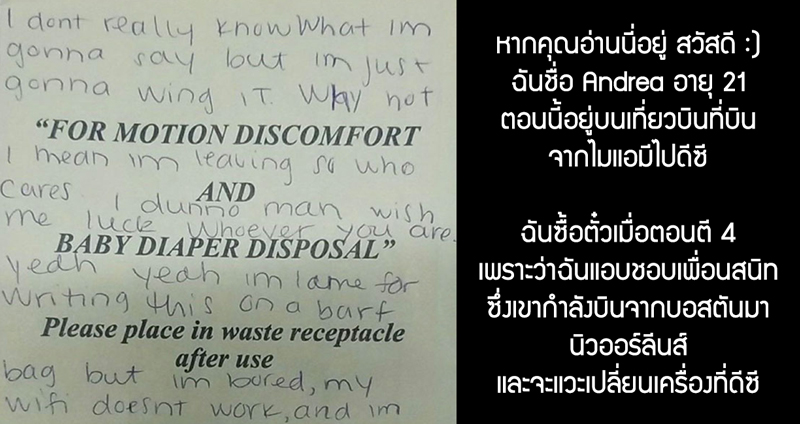 I dont really know what im
gonna say but im just
gonna wing it. Why not
"FOR MOTION DISCOMFORT
I mean im leaving so who
cares. I dunno man wish
AND
me luck whoever you are.
BABY DIAPER DISPOSAL"
yeah yeah im lame for
writing this on a barf
Please place in waste receptacle
after use
bag but im bored, my
wifi doesnt work, and im
หากคุณอ่านนี่อยู่ สวัสดี :)
ฉันชื่อ Andrea อายุ 21
ตอนนี้อยู่บนเที่ยวบินที่บิน
จากไมแอมีไปดีซี
ฉันซื้อตั๋วเมื่อตอนตี 4
เพราะว่าฉันแอบชอบเพื่อนสนิท
ซึ่งเขากำลังบินจากบอสตันมา
นิวออร์ลีนส์
และจะแวะเปลี่ยนเครื่องที่ดีซี